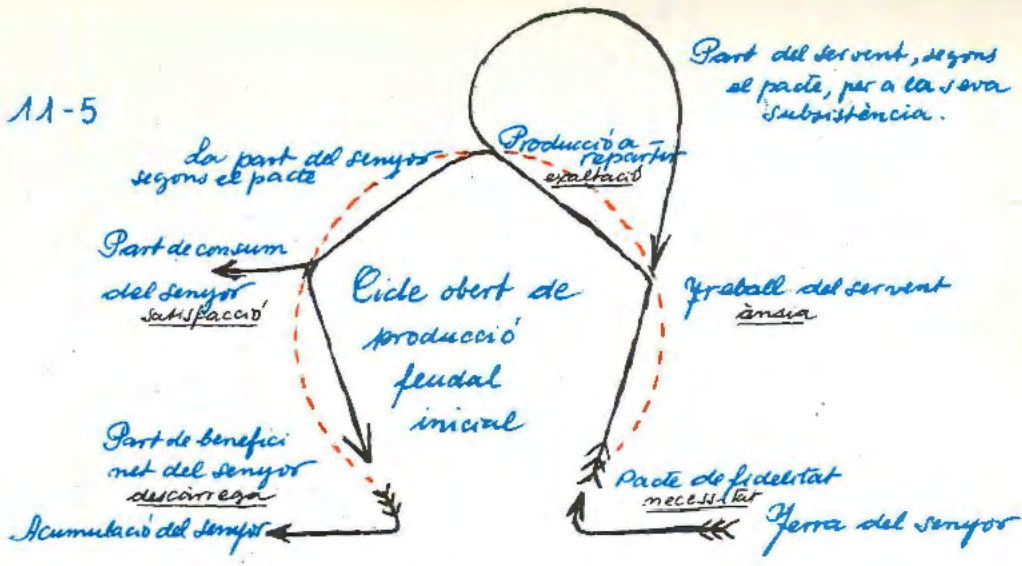 11-5
Part del servent, segons
el pacte, per a la seva
subsistència.
Producció a
repartir
exaltació
La part del senyor
segons el pacte
Part de consum
del senyor
satisfacció
Cicle obert de
producció
feudal
inicial
Treball del servent
ànsia
Part de benefici
net del senyor
descàrrega
Acumulació del senyor
Pacte de fidelitat
necessitat
Terra del senyor